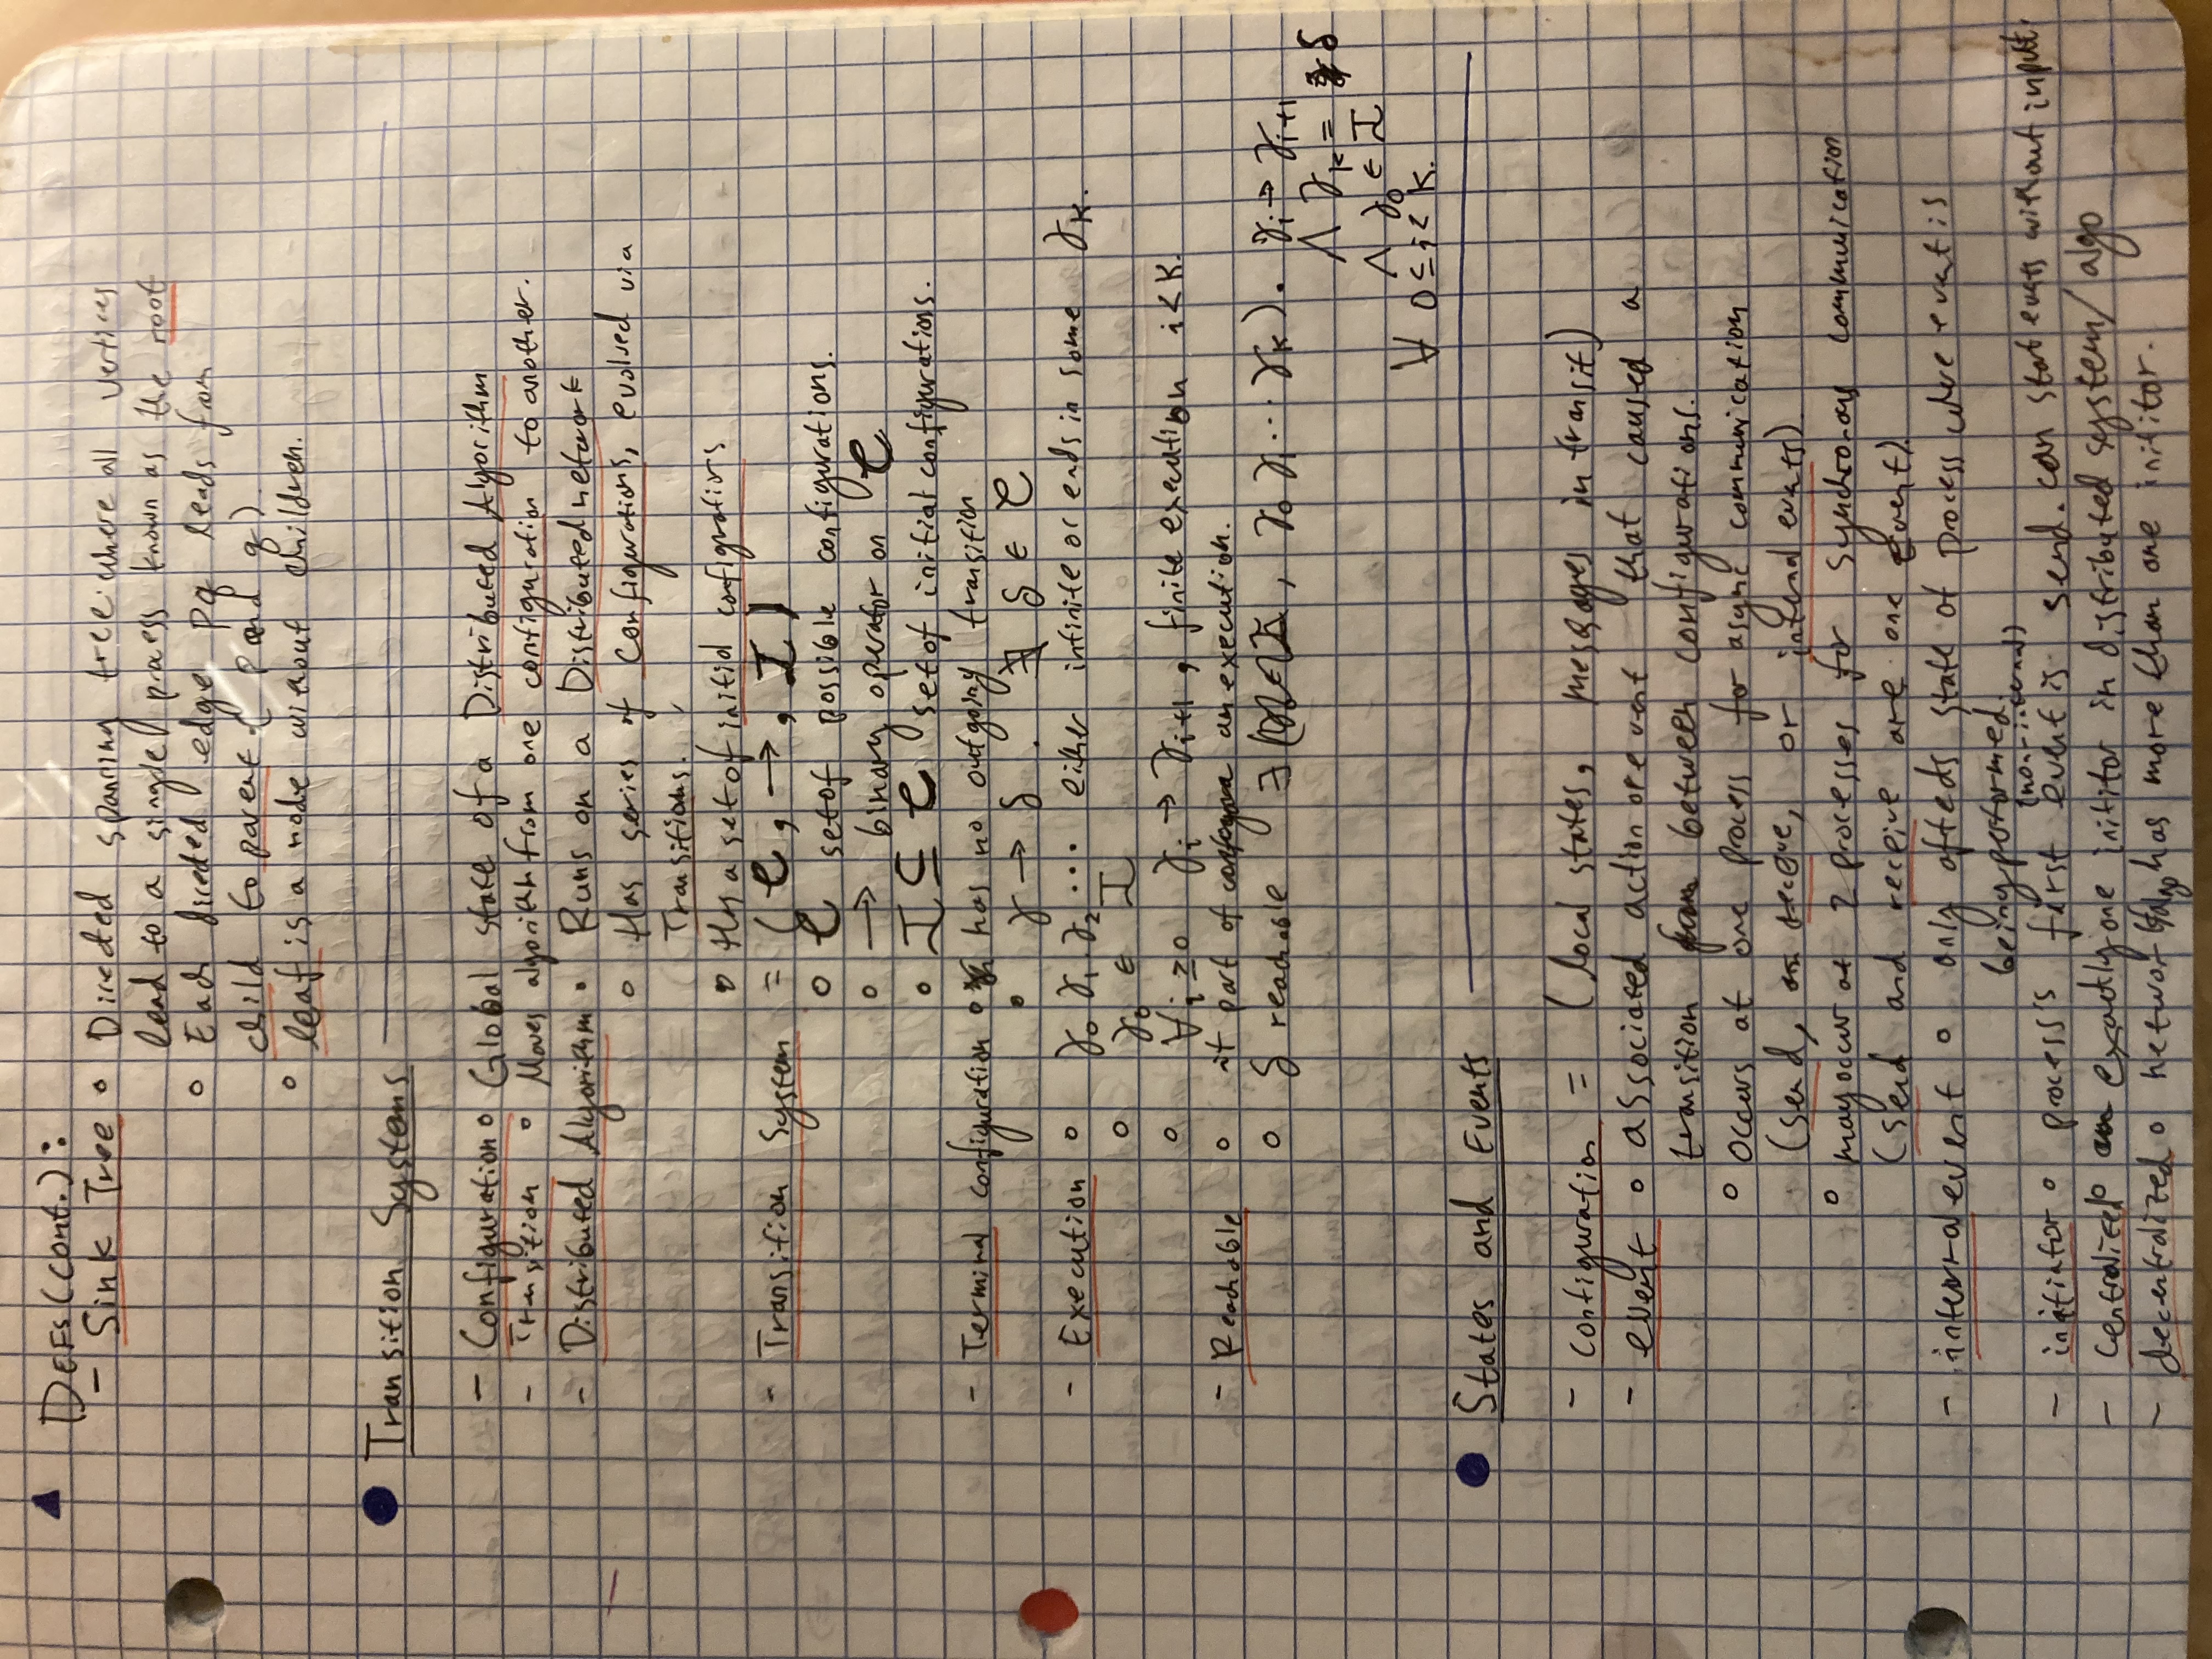 DEFS (cont.):
- Sink Tree ∘ Directed spanning tree where all vertices
lead to a single process known as the root
∘ Each directed edge pq leads from
child to parent (p and q)
∘ leaf is a node without children.
Transition Systems
- Configuration ∘ Global state of a Distributed Algorithm
- Transition ∘ Moves algorithm from one configuration to another.
- Distributed Algorithm ∘ Runs on a Distributed network
∘ Has series of configurations, evolved via
Transitions.
∘ Has a set of initial configurations
- Transition System = (C, →, I)
∘ C set of possible configurations.
∘ → binary operator on C
∘ I ⊆ C set of initial configurations.
- Terminal configuration ∘ has no outgoing transition
∘ γ → δ . ∄ δ ∈ C
- Execution ∘ γ₀ γ₁ γ₂ ... either infinite or ends in some γₖ.
∘ γ₀ ∈ I
∘ ∀i ≥ 0 γᵢ → γᵢ₊₁, finite execution i < k.
- Reachable ∘ if part of an execution.
∘ δ reachable ∃ ( , γ₀ γ₁ ... γₖ). γᵢ → γᵢ₊₁
∧ γₖ = δ
∧ γ₀ ∈ I
∀ 0 ≤ i < k.
States and Events
- configuration = (local states, messages in transit)
- event ∘ associated action or event that caused a
transition between configurations.
∘ occurs at one process for async communication
(send, receive, or internal events)
∘ may occur at 2 processes for synchronous communication
(send and receive are one event).
- internal event ∘ only affects state of process where event is
being performed.
(non-internal)
- initiator ∘ process's first event is send. can start events without input.
- centralized ∘ exactly one inititor in distributed system/algo
- decentralized ∘ network/algo has more than one inititor.